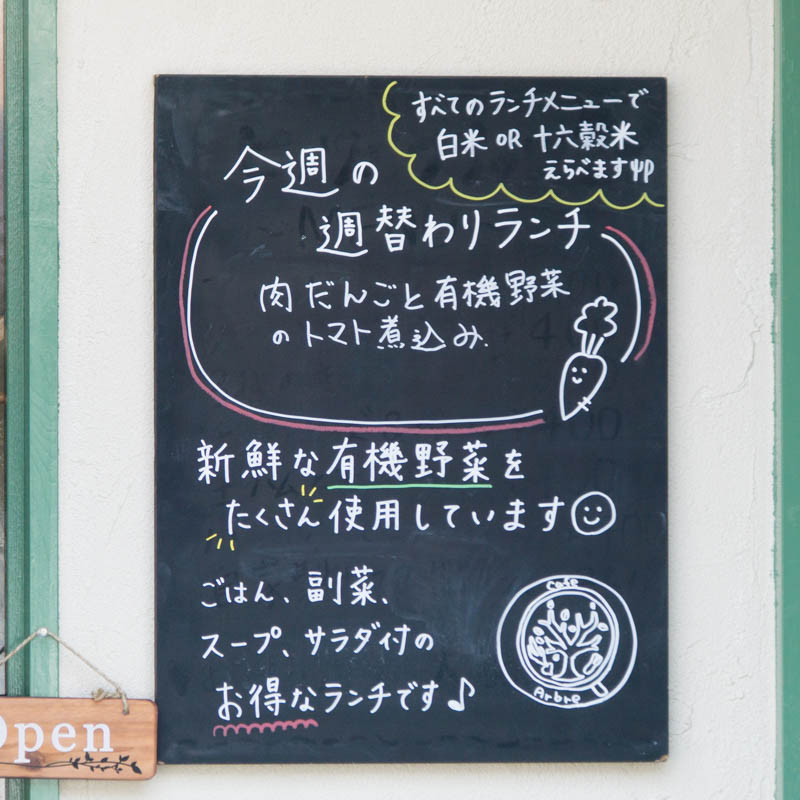 すべてのランチメニューで
白米 OR 十六穀米
えらべます
今週の
週替わりランチ
肉だんごと有機野菜
のトマト煮込み.
新鮮な有機野菜を
たくさん使用しています
ごはん、副菜、
スープ、サラダ付の
お得なランチです♪
Cafe
Arbre
Open